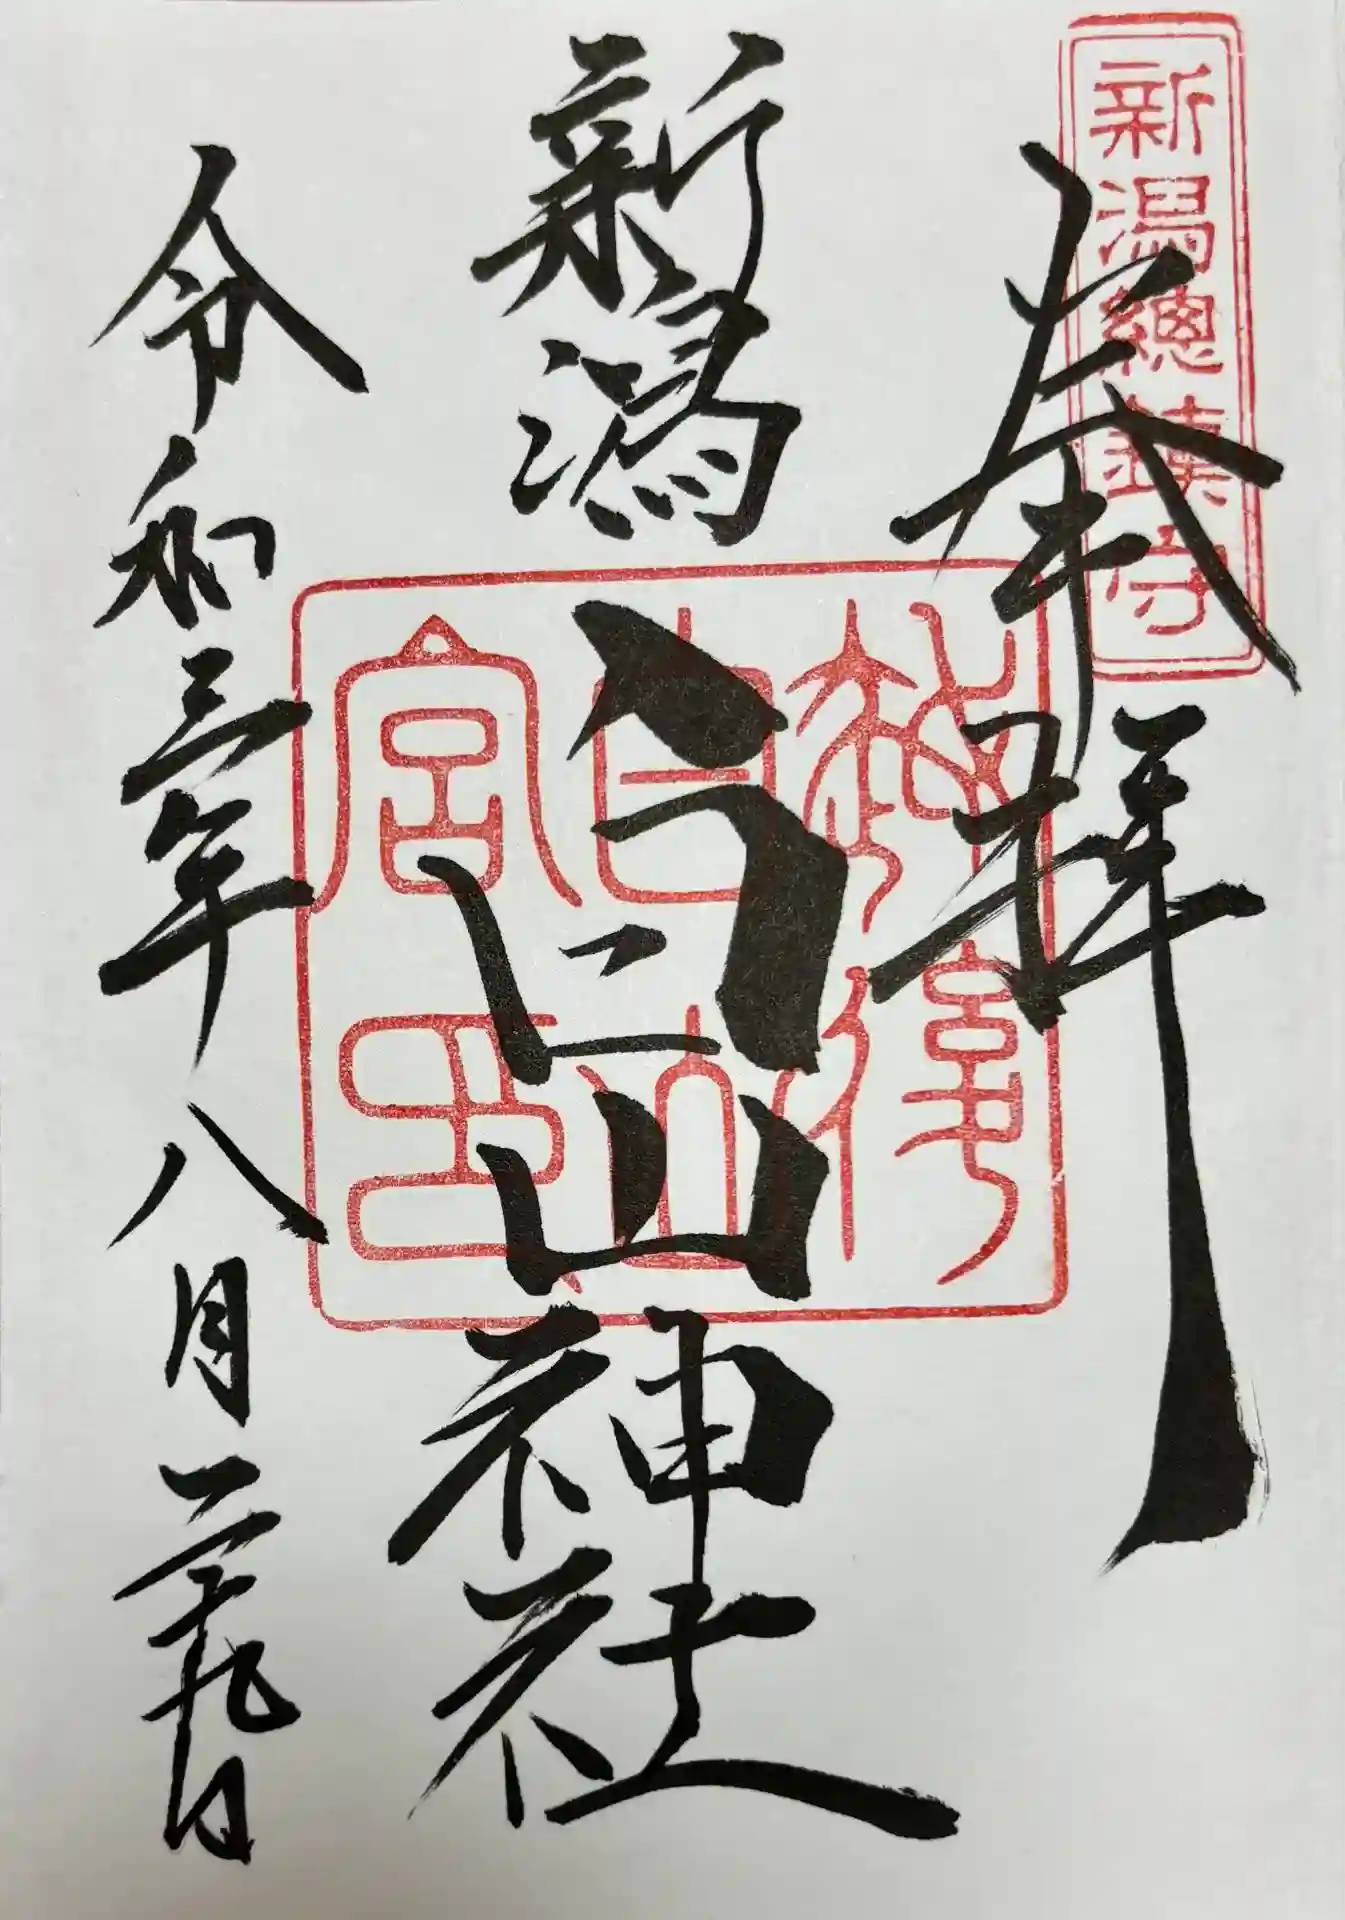 新潟總鎮守
奉拝
新潟
白山神社
神宮
白山
宮印
令和三年八月二十九日